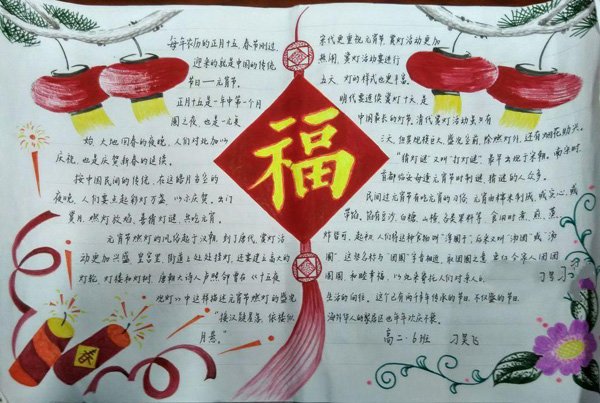 每年农历的正月十五,春节刚过,
迎来的就是中国的传统
节日——元宵节。
正月十五是一年中第一个月
圆之夜,也是一元复
始,大地回春的夜晚,人们对此加以
庆祝,也是庆贺新春的延续。
按中国民间的传统,在这皓月当空的
夜晚,人们要点起彩灯万盏,以示庆贺。出门
赏月、燃灯放焰、喜猜灯谜、共吃元宵。
元宵节燃灯的风俗起于汉朝,到了唐代,赏灯活
动更加兴盛,皇宫里、街道上处处挂灯,还要建立高大的
灯轮、灯楼和灯树,唐朝大诗人卢照邻曾在《十五夜
观灯》中这样描述元宵节燃灯的盛况
"接汉疑星落,依楼似
月悬。"
福
春
宋代更重视元宵节,赏灯活动更加
热闹,赏灯活动要进行
五天,灯的样式也更丰富。
明代要连续赏灯十天,是
中国最长的灯节,清代赏灯活动虽只有
三天,但是规模巨大,盛况空前,除燃灯外,还有烟花助兴。
"猜灯谜"又叫"打灯谜"最早出现于宋朝。南宋时,
首都临安每逢元宵节时制谜,猜谜的人众多。
民间过元宵节有吃元宵的习俗。元宵由糯米制成,或实心,或
带馅。馅有豆沙、白糖、山楂、各类果料等,食用时煮、煎、蒸、
炸皆可。起初,人们将这种食物叫"浮圆子",后来又叫"汤团"或"汤
圆",这些名称与"团圆"字音相近,取团圆之意,象征全家人团团
圆圆,和睦幸福,以此来寄托人们对亲人
生活的向往。这个已有两千多年传承的节日,不仅盛的节日。
海外华人的聚居区也年年欢庆不衰。
高二·6班 刁笑飞